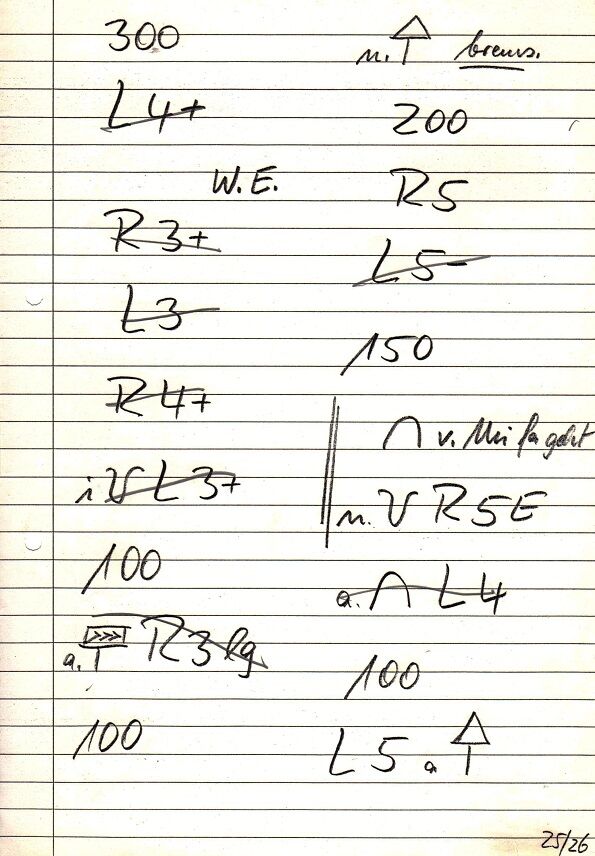 300
L4+
W.E.
R3+
L3
R4+
i V L3+
100
a. >>> R3 lg
100
n. brems.
200
R5
L5-
150
∩ v. Mi fa geht
n. V R5E
a. ∩ L4
100
L5 a
25/26